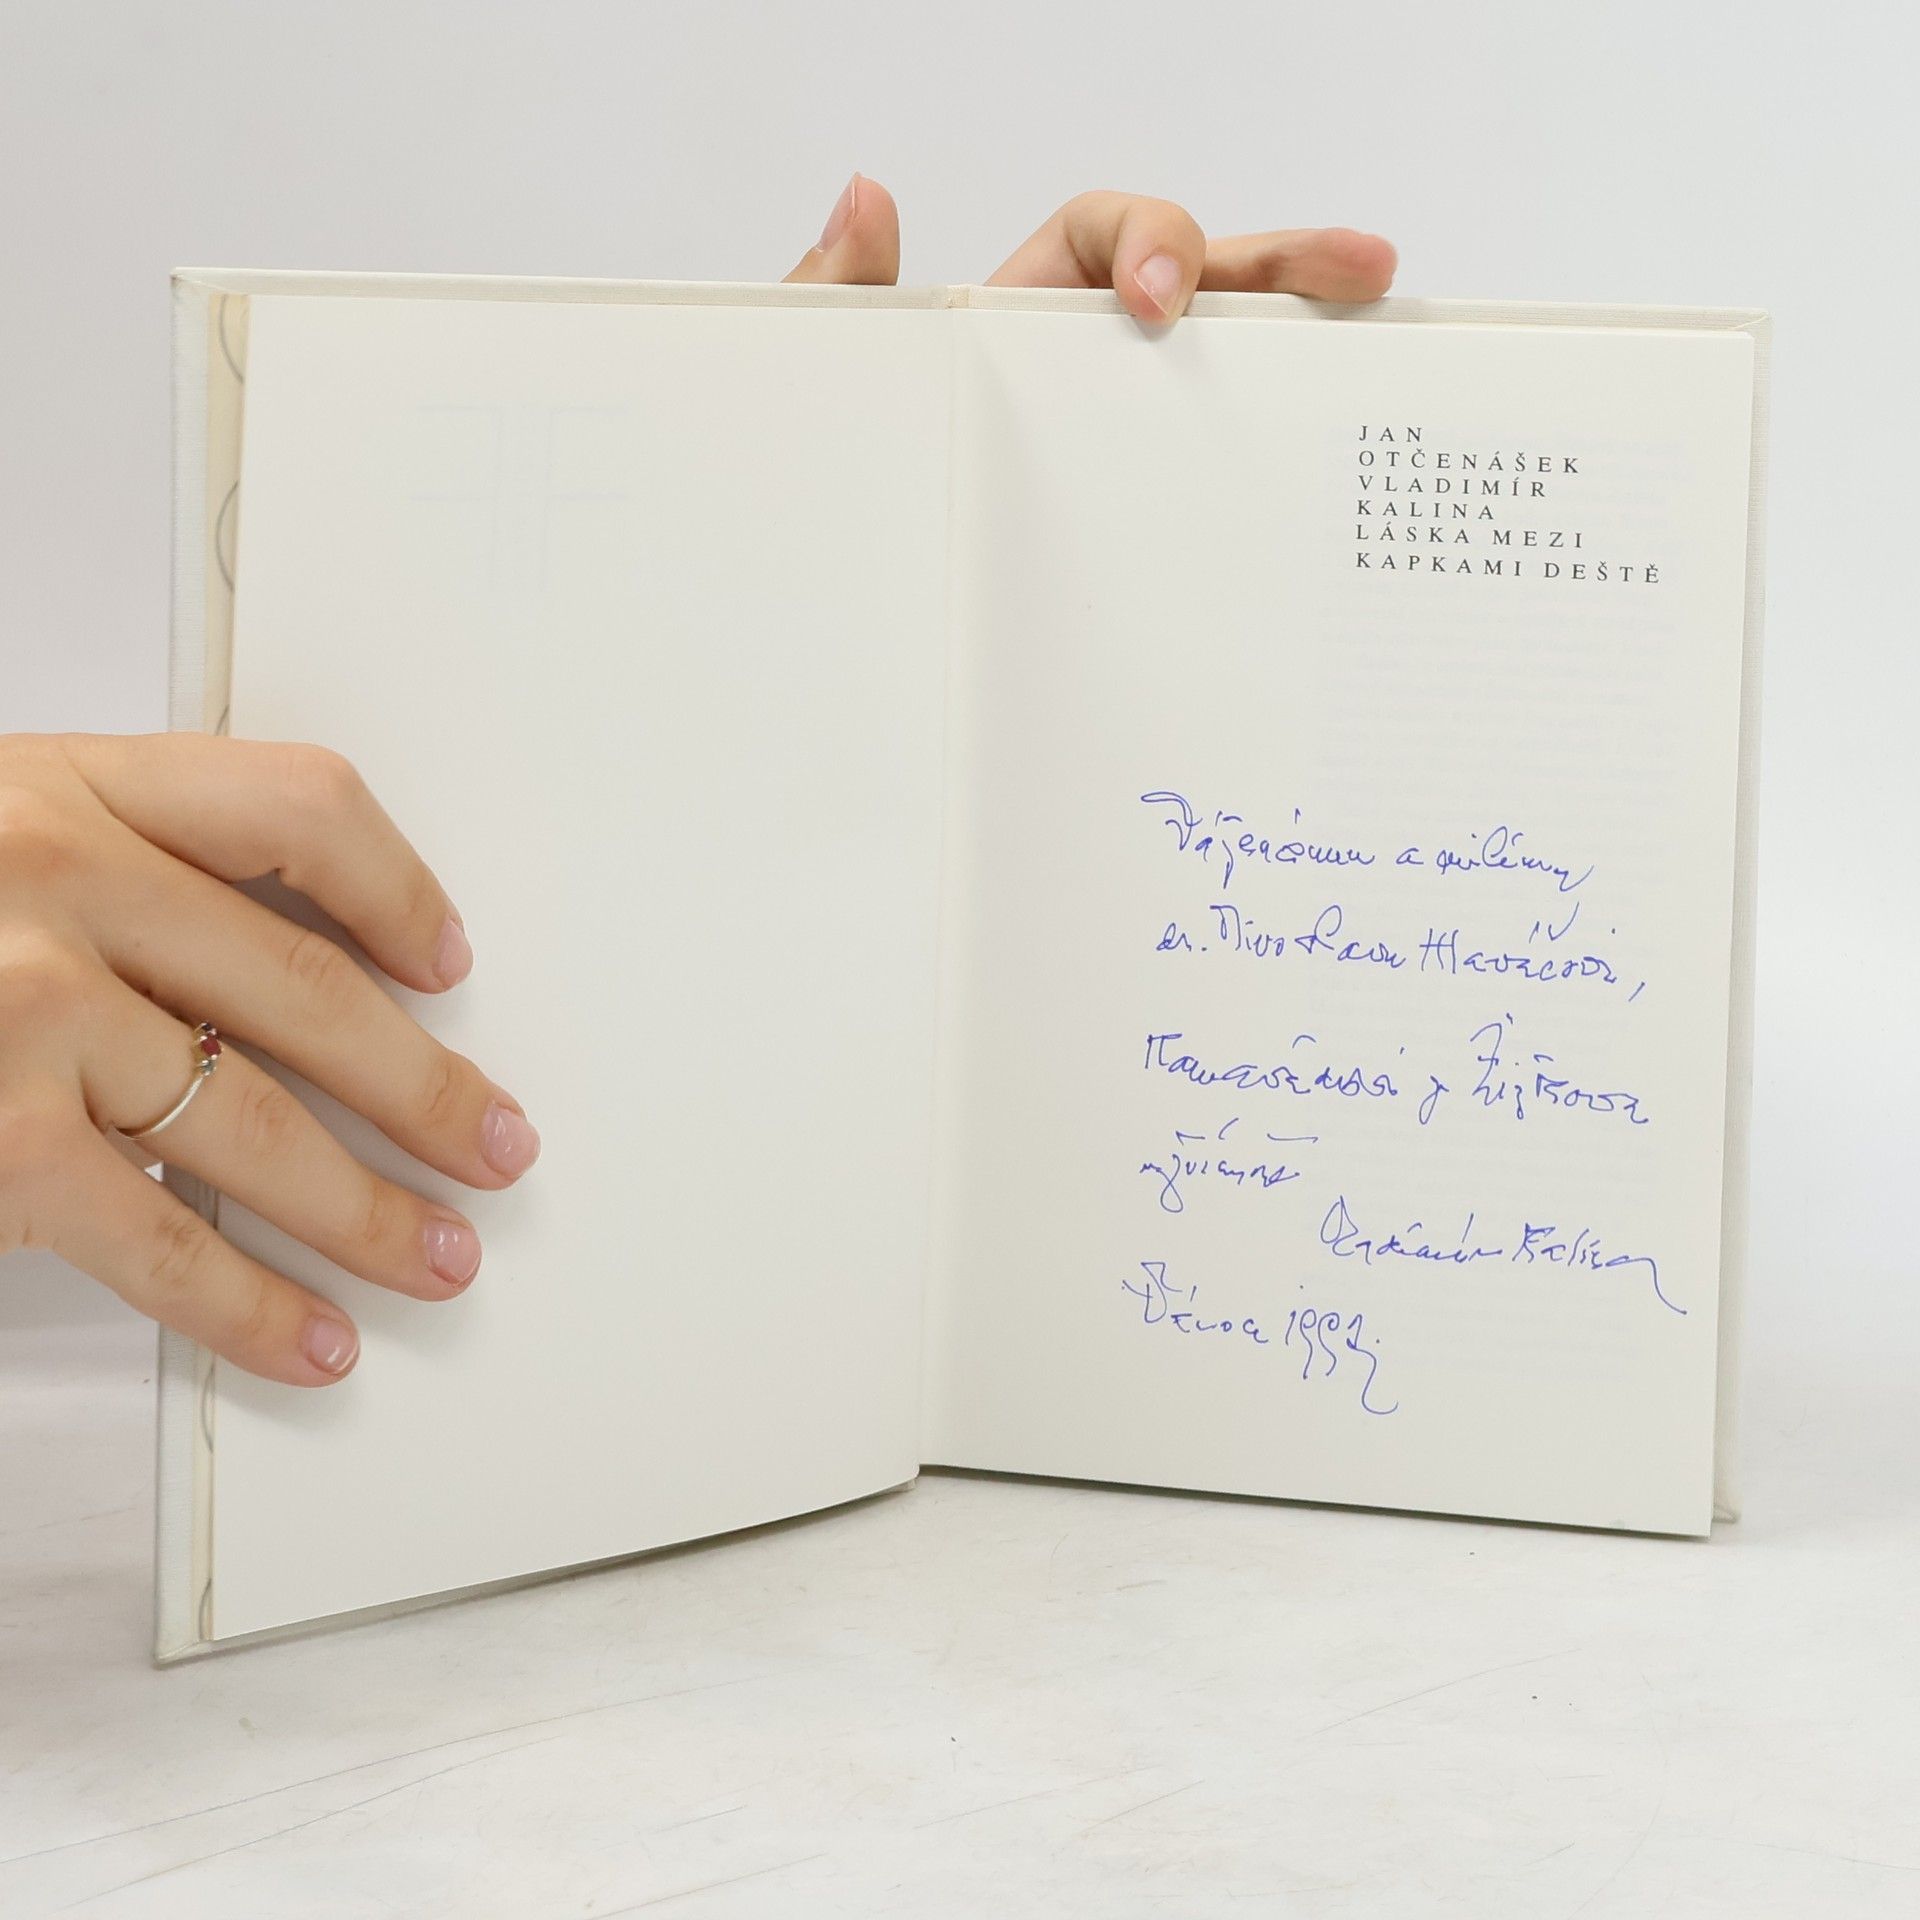 JAN
OTČENÁŠEK
VLADIMÍR
KALINA
LÁSKA MEZI
KAPKAMI DEŠTĚ
Váženému a milému
dr. Miroslavu Hlaváčovi,
z Žižkova
Vladimír Kalina
Vánoce 1991.